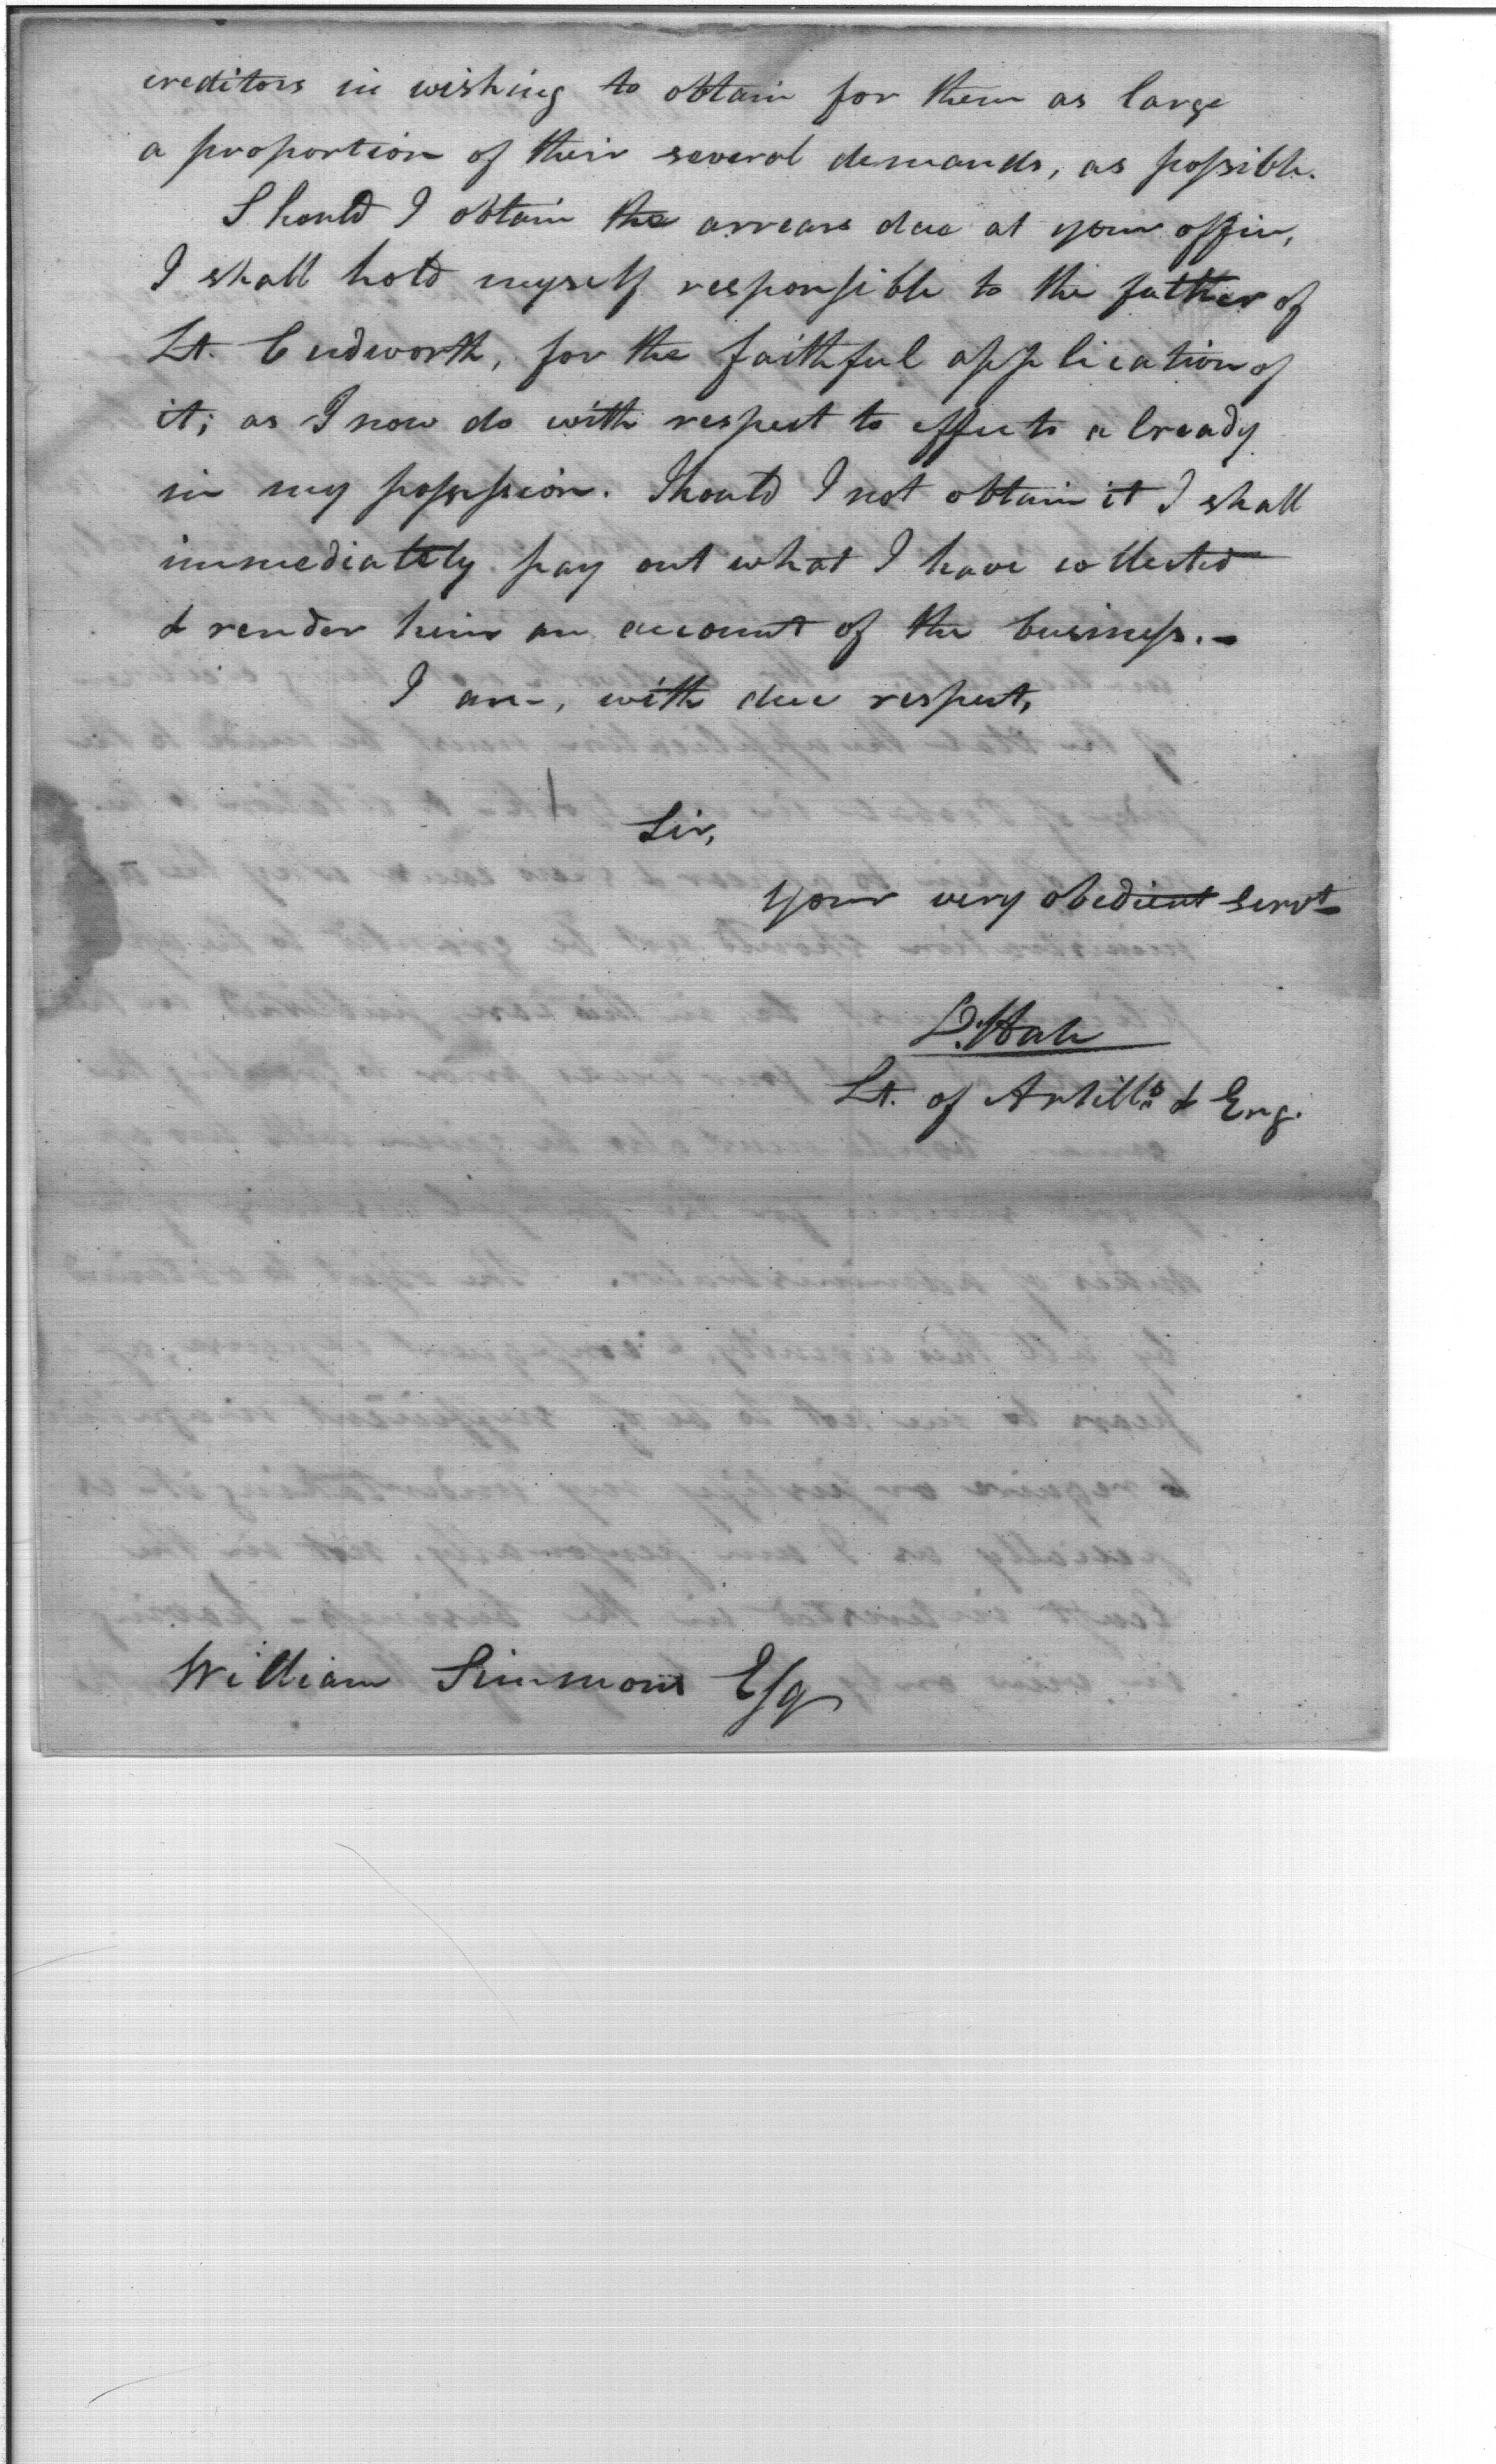 creditors in wishing to obtain for them as large
a proportion of their several demands, as possible.
Should I obtain the arrears due at your office,
I shall hold myself responsible to the father of
Lt. Cudworth, for the faithful application of
it; as I now do with respect to effects already
in my possession. Should I not obtain it I shall
immediately pay out what I have collected
& render him an account of the business.-
I am-, with due respect,
Sir,
your very obedient servt
D. Hale
Lt. of Artills & Eng.
William Simmons Esq